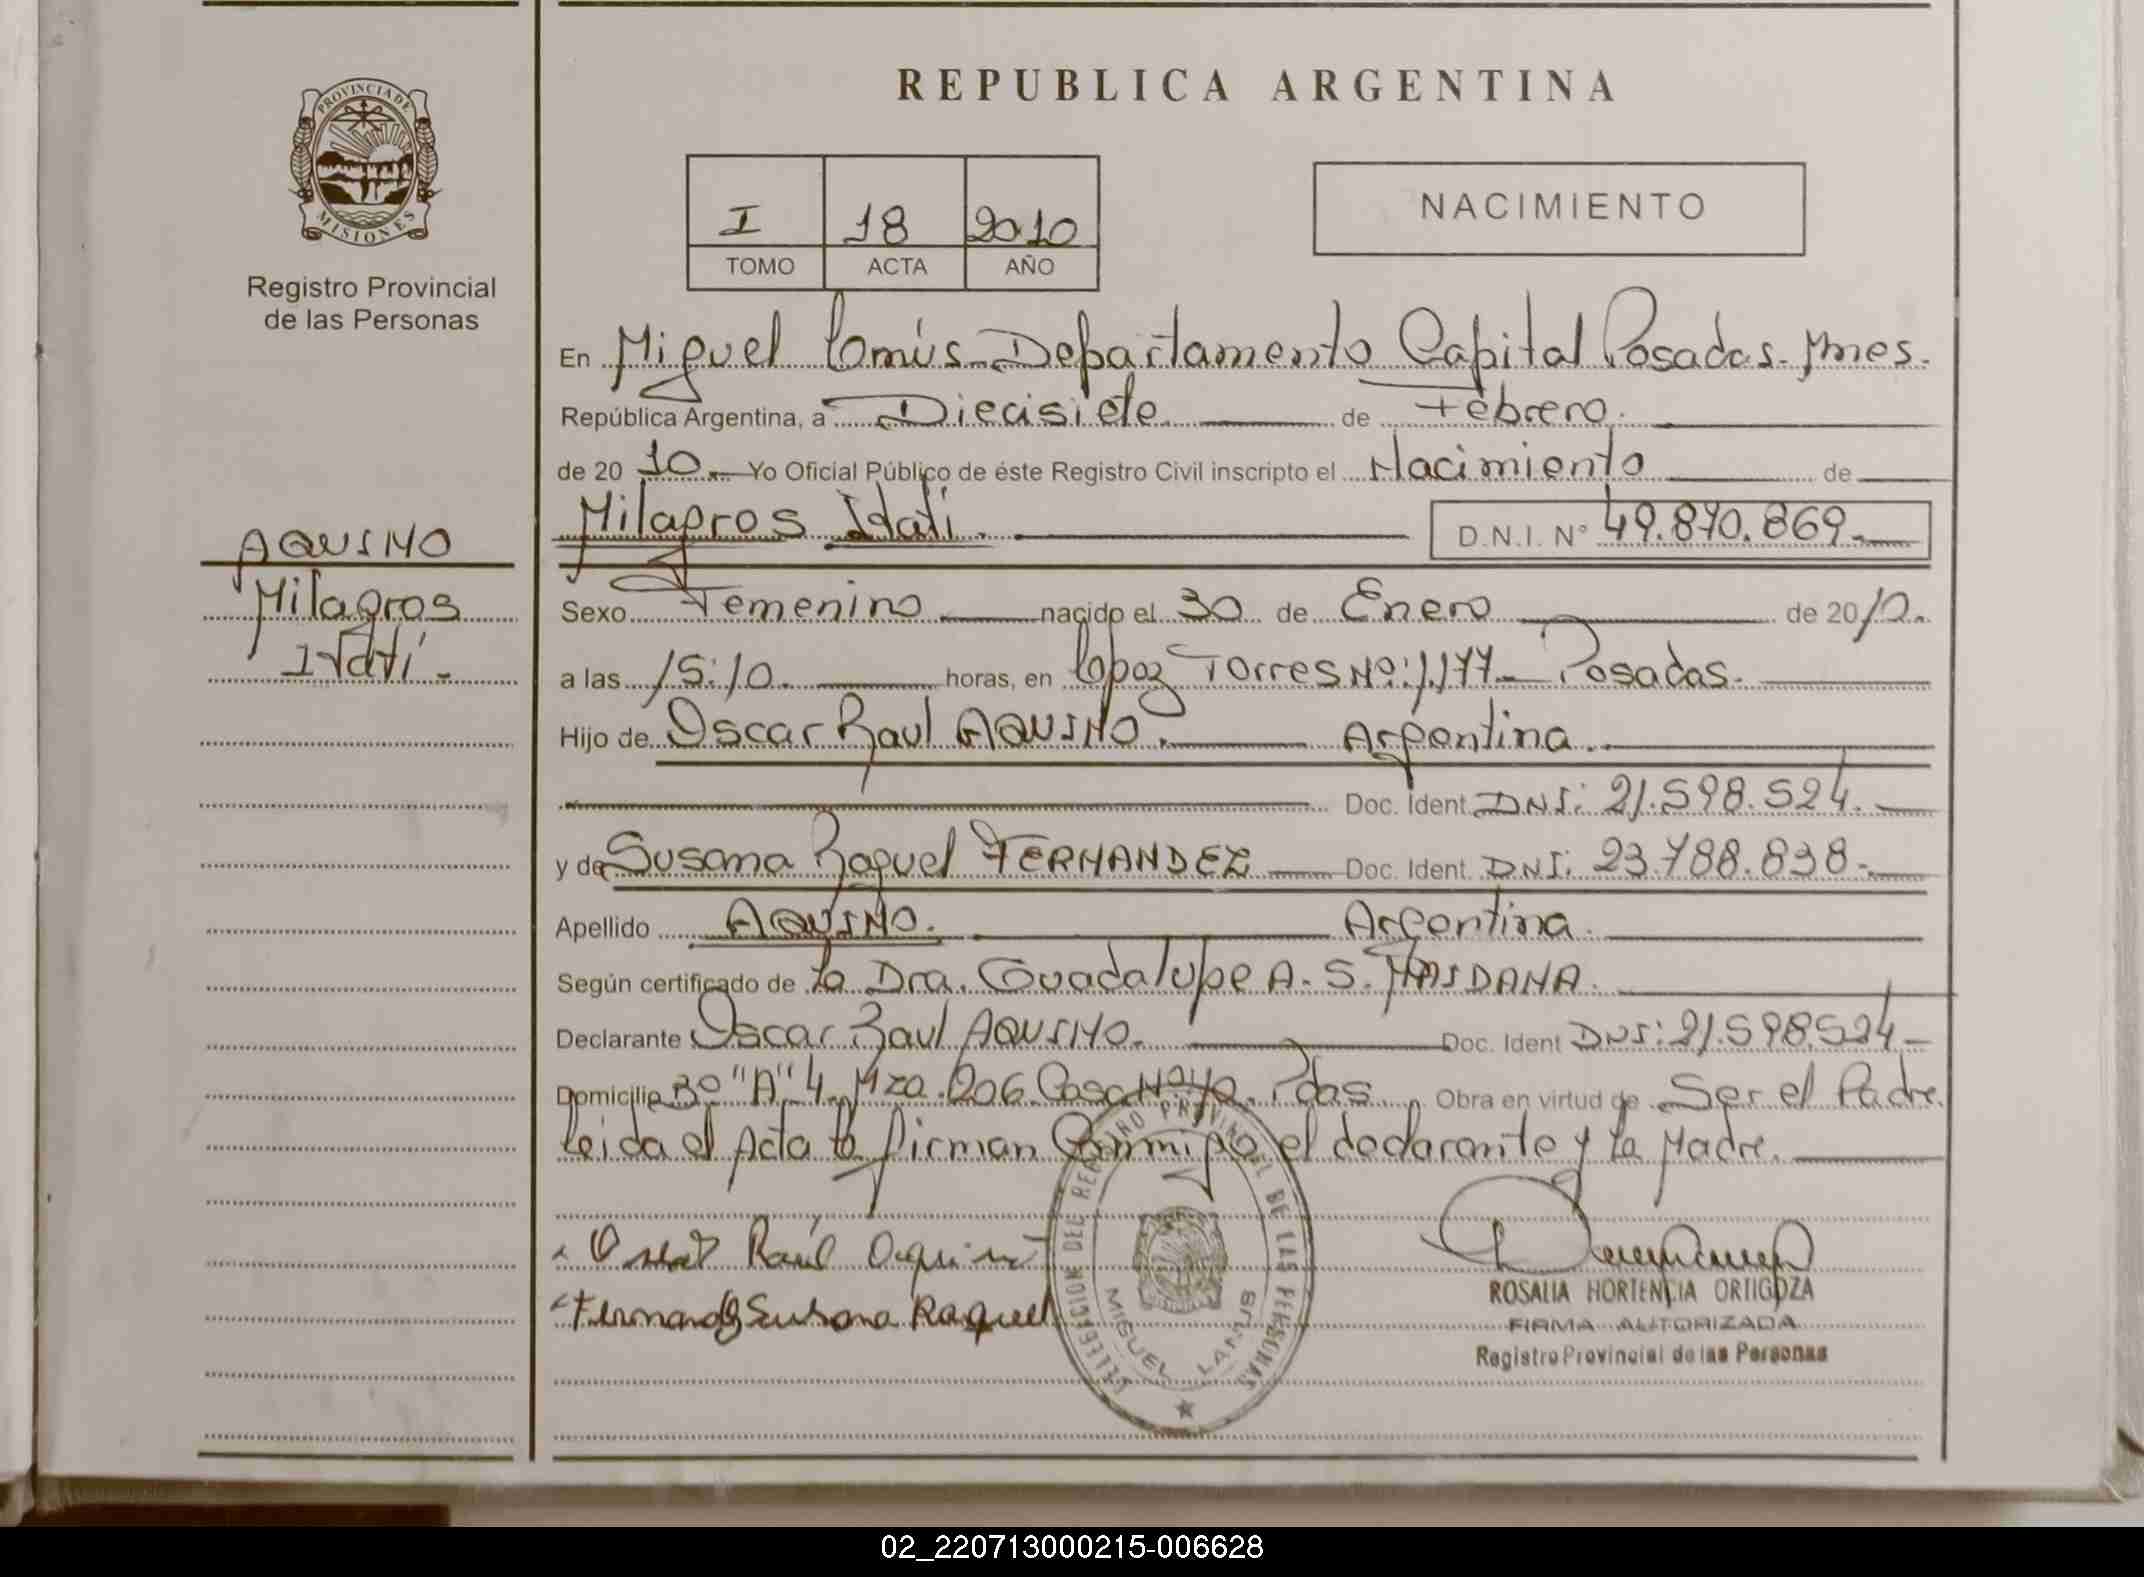 REPUBLICA ARGENTINA
PROVINCIA DE
MISIONES
Registro Provincial
de las Personas
I 18 2010
TOMO ACTA AÑO
NACIMIENTO
En Miguel Lanús Departamento Capital Posadas- Mnes.
República Argentina, a Diecisiete de Febrero.
de 20 10.- Yo Oficial Público de éste Registro Civil inscripto el Nacimiento de
Milagros Itatí. D.N.I. N° 49.870.869.-
AQUINO
Milagros
Itatí.-
Sexo Femenino nacido el 30 de Enero de 2010.
a las 15:10. horas, en Lopez Torres Nº: 1.177- Posadas.
Hijo de Oscar Raul AQUINO. Argentina.
Doc. Ident. DNI: 21.598.524.
y de Susana Raquel FERNANDEZ Doc. Ident. DNI: 23.788.838.-
Apellido AQUINO. Argentina.
Según certificado de la Dra. Guadalupe A. S.
Declarante Oscar Raul AQUINO. Doc. Ident DNI: 21.598.524-
Domicilio Bº "A" 4 Mza. 206 Casa Nº Pdas. Obra en virtud de Ser el Padre.
Leida el Acta la firman Conmigo el declarante y la Madre.
Oscar Raúl Aquino
Fernandez Susana Raquel
DELEGACION DEL REGISTRO PROVINCIAL DE LAS PERSONAS
MIGUEL LANUS
ROSALIA HORTENCIA ORTIGOZA
FIRMA AUTORIZADA
Registro Provincial de las Personas
02_220713000215-006628